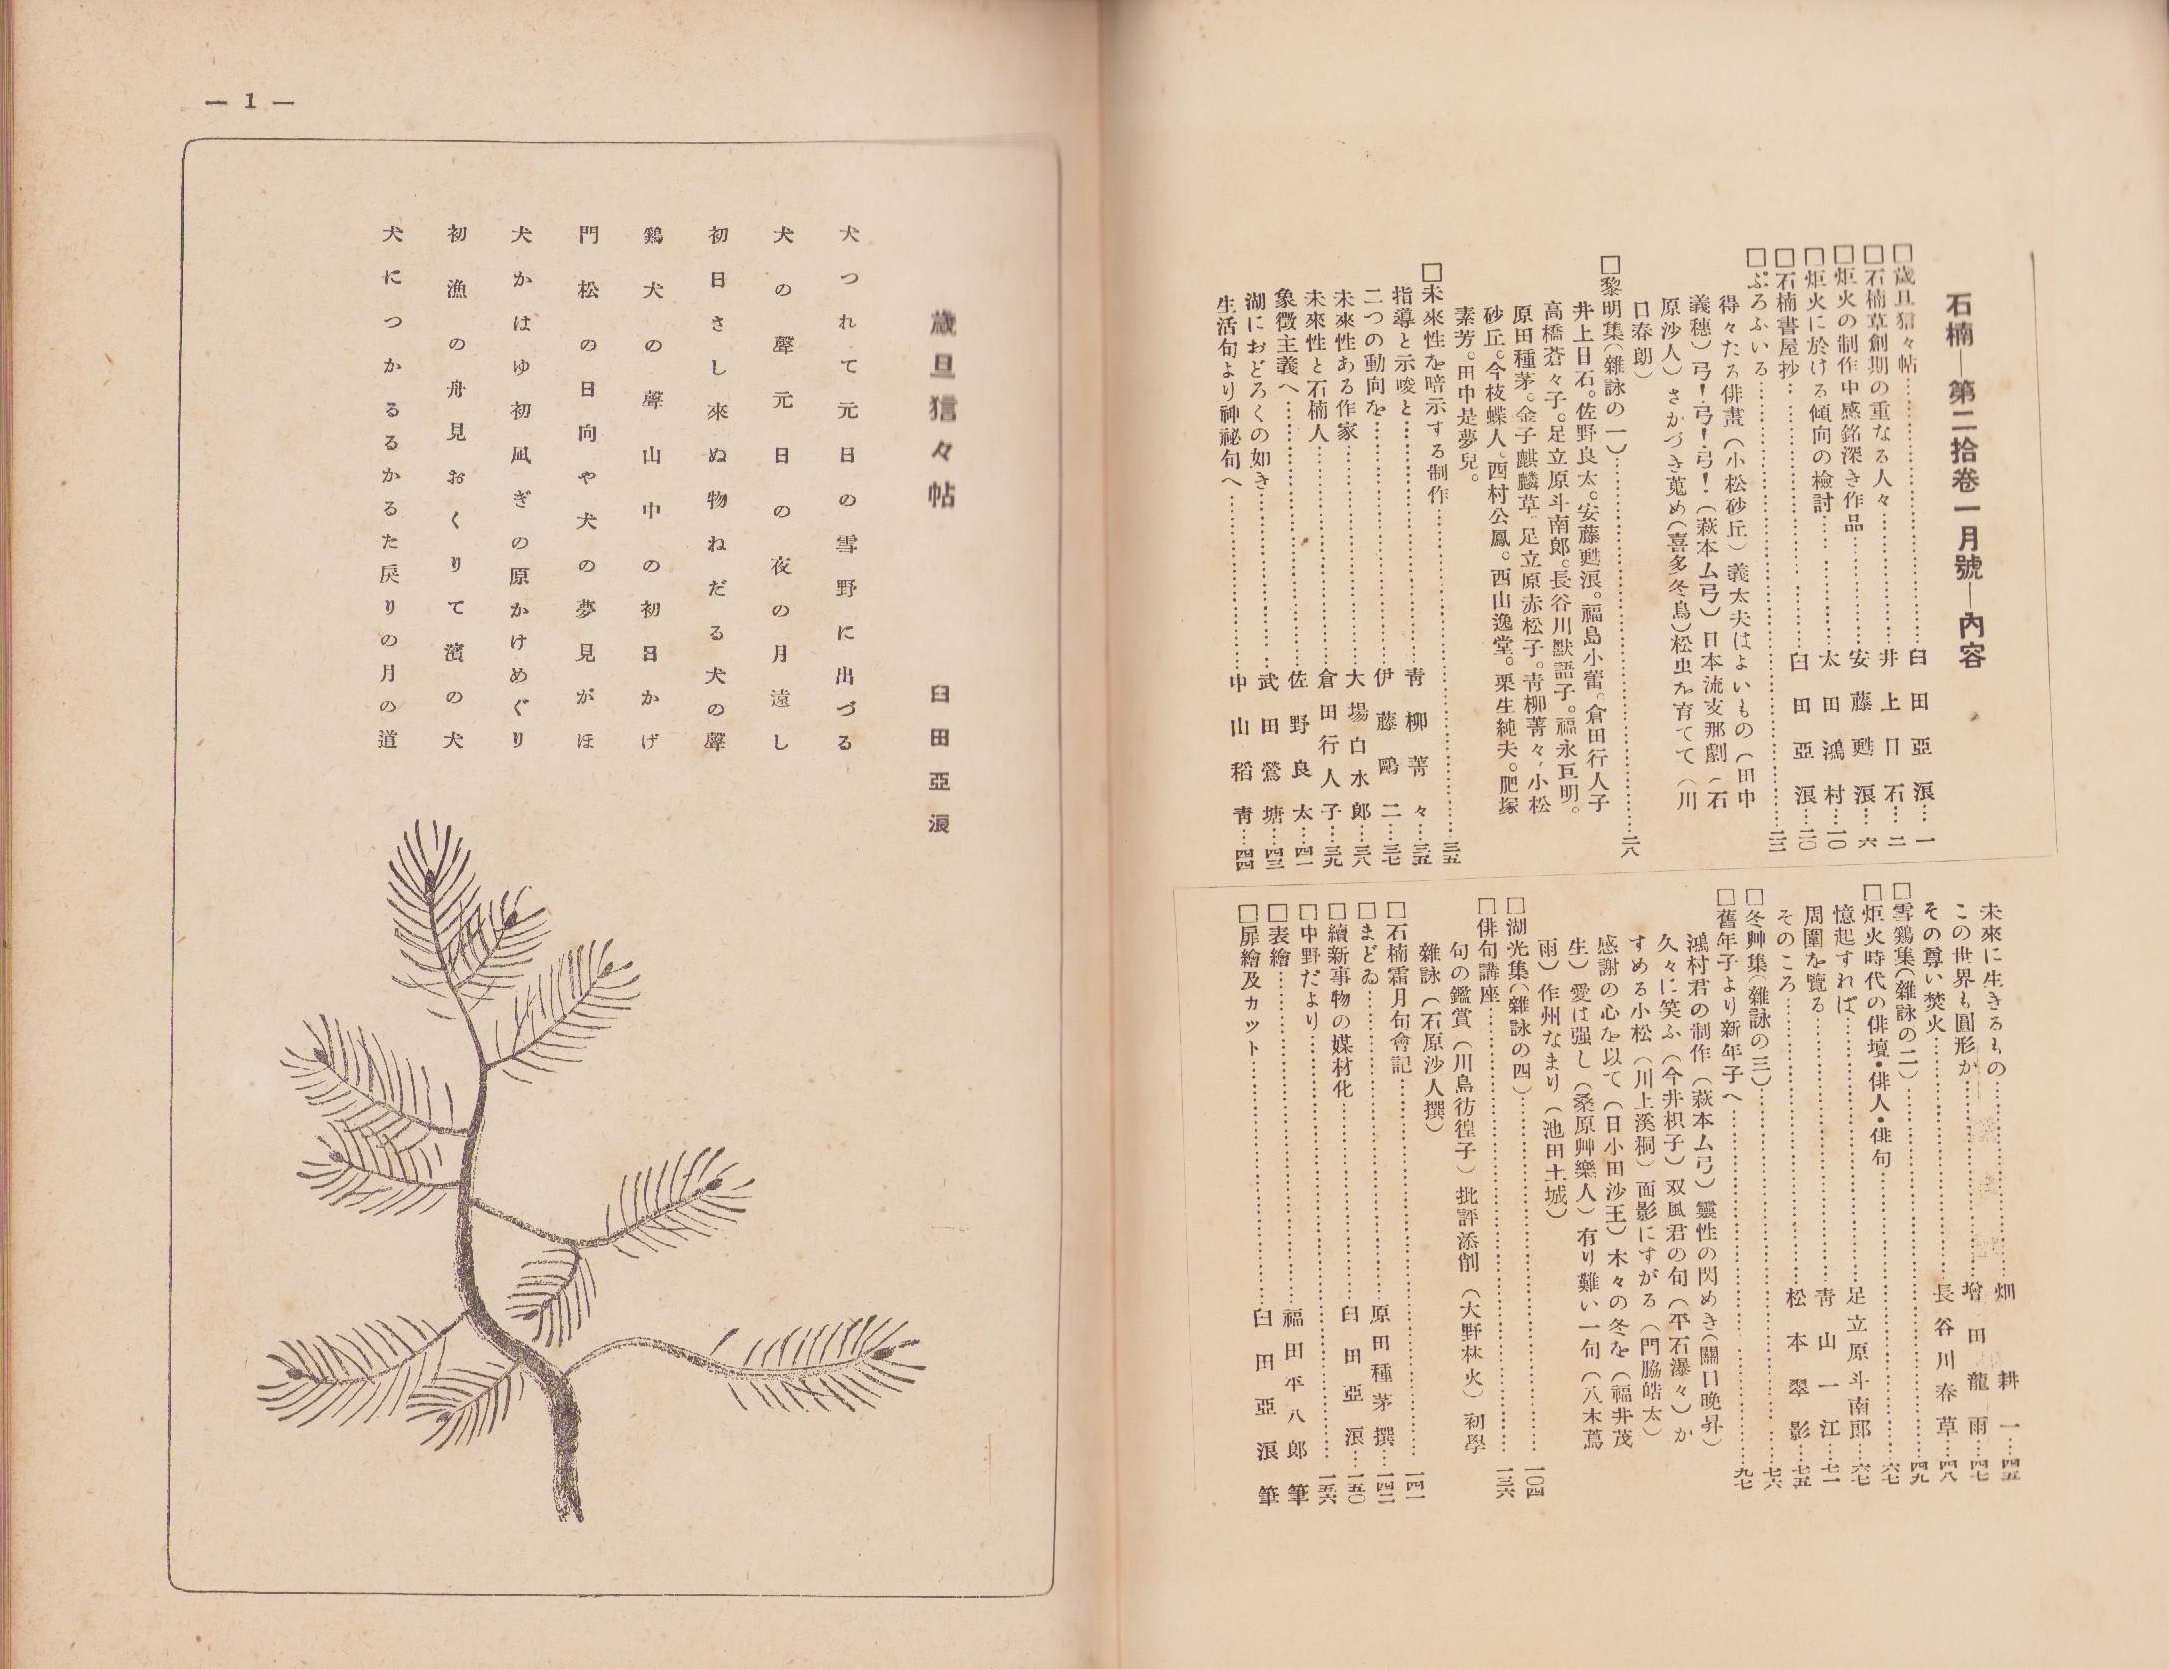 石楠―第二拾卷一月號―內容
□歳旦狺々帖……臼田亞浪…一
□石楠草創期の重なる人々……井上日石…二
□炬火の制作中感銘深き作品……安藤甦浪…六
□炬火に於ける傾向の檢討……太田鴻村…一〇
□石楠書屋抄……臼田亞浪…二〇
□ぷろふいる……二二
得々たる俳畫（小松砂丘）義太夫はよいもの（田中
義穗）弓！弓！弓！（萩本ム弓）日本流支那劇（石
原沙人）さかづき蒐め（喜多冬鳥）松虫を育てて（川
口春朗）
□黎明集（雜詠の一）……二八
井上日石。佐野良太。安藤甦浪。福島小蕾。倉田行人子
高橋蒼々子。足立原斗南郎。長谷川獸語子。福永巨明。
原田種茅。金子麒麟草。足立原赤松子。靑柳菁々。小松
砂丘。今枝蝶人。西村公鳳。西山逸堂。栗生純夫。肥塚
素芳。田中是夢兒。
□未來性を暗示する制作……三五
指導と示唆と……靑柳菁々…三五
二つの動向を……伊藤鷗二…三七
未來性ある作家……大場白水郎…三八
未來性と石楠人……倉田行人子…三九
象徵主義へ……佐野良太…四一
湖におどろくの如き……武田鶯塘…四三
生活句より神祕句へ……中山稻靑…四四
未來に生きるもの……畑耕一…四五
この世界も圓形か……增田龍雨…四七
その尊い焚火……長谷川春草…四八
□雪鷄集（雜詠の二）……四九
□炬火時代の俳壇・俳人・俳句……六七
憶起すれば……足立原斗南郎…六七
周圍を覽る……靑山一江…七一
そのころ……松本翠影…七五
□冬艸集（雜詠の三）……七六
□舊年子より新年子へ……九七
鴻村君の制作（萩本ム弓）靈性の閃めき（關口晚昇）
久々に笑ふ（今井枳子）双風君の句（平石瀑々）か
すめる小松（川上溪桐）面影にすがる（門脇皓太）
感謝の心を以て（日小田沙王）木々の冬を（福井茂
生）愛は强し（桑原艸樂人）有り難い一句（八木蔦
雨）作州なまり（池田土城）
□湖光集（雜詠の四）……一〇四
□俳句講座……一三六
句の鑑賞（川島彷徨子）批評添削（大野林火）初學
雜詠（石原沙人撰）
□石楠霜月句會記……一四一
□まどゐ……原田種茅撰…一四二
□續新事物の媒材化……臼田亞浪…一五〇
□中野だより……一五六
□表繪……福田平八郎筆
□扉繪及カット……臼田亞浪筆
― 1 ―
歳旦狺々帖　臼田亞浪
犬つれて元日の雪野に出づる
犬の聲元日の夜の月遠し
初日さし來ぬ物ねだる犬の聲
鷄犬の聲山中の初日かげ
門松の日向や犬の夢見がほ
犬かはゆ初凪ぎの原かけめぐり
初漁の舟見おくりて濱の犬
犬につかるるかるた戾りの月の道